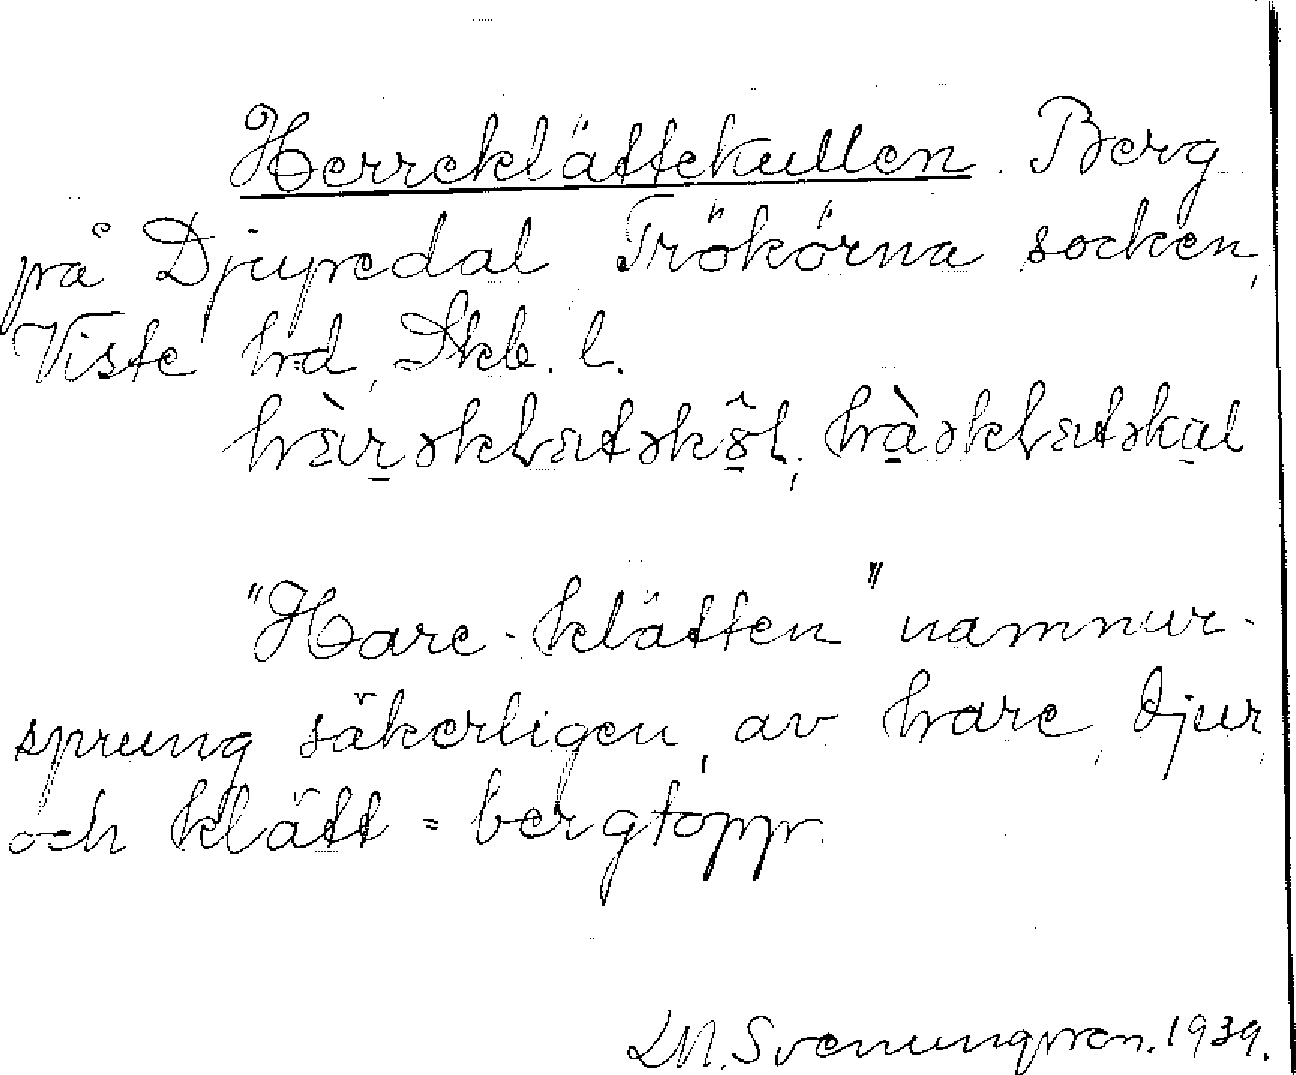 Herreklättekullen. Berg
på Djupedal Trökörna socken,
Viste hd, Skb. l.
"Hare-klätten" namnur-
sprung säkerligen, av hare, djur,
och klätt = bergtopp.
L.M. Svenungsson. 1939.